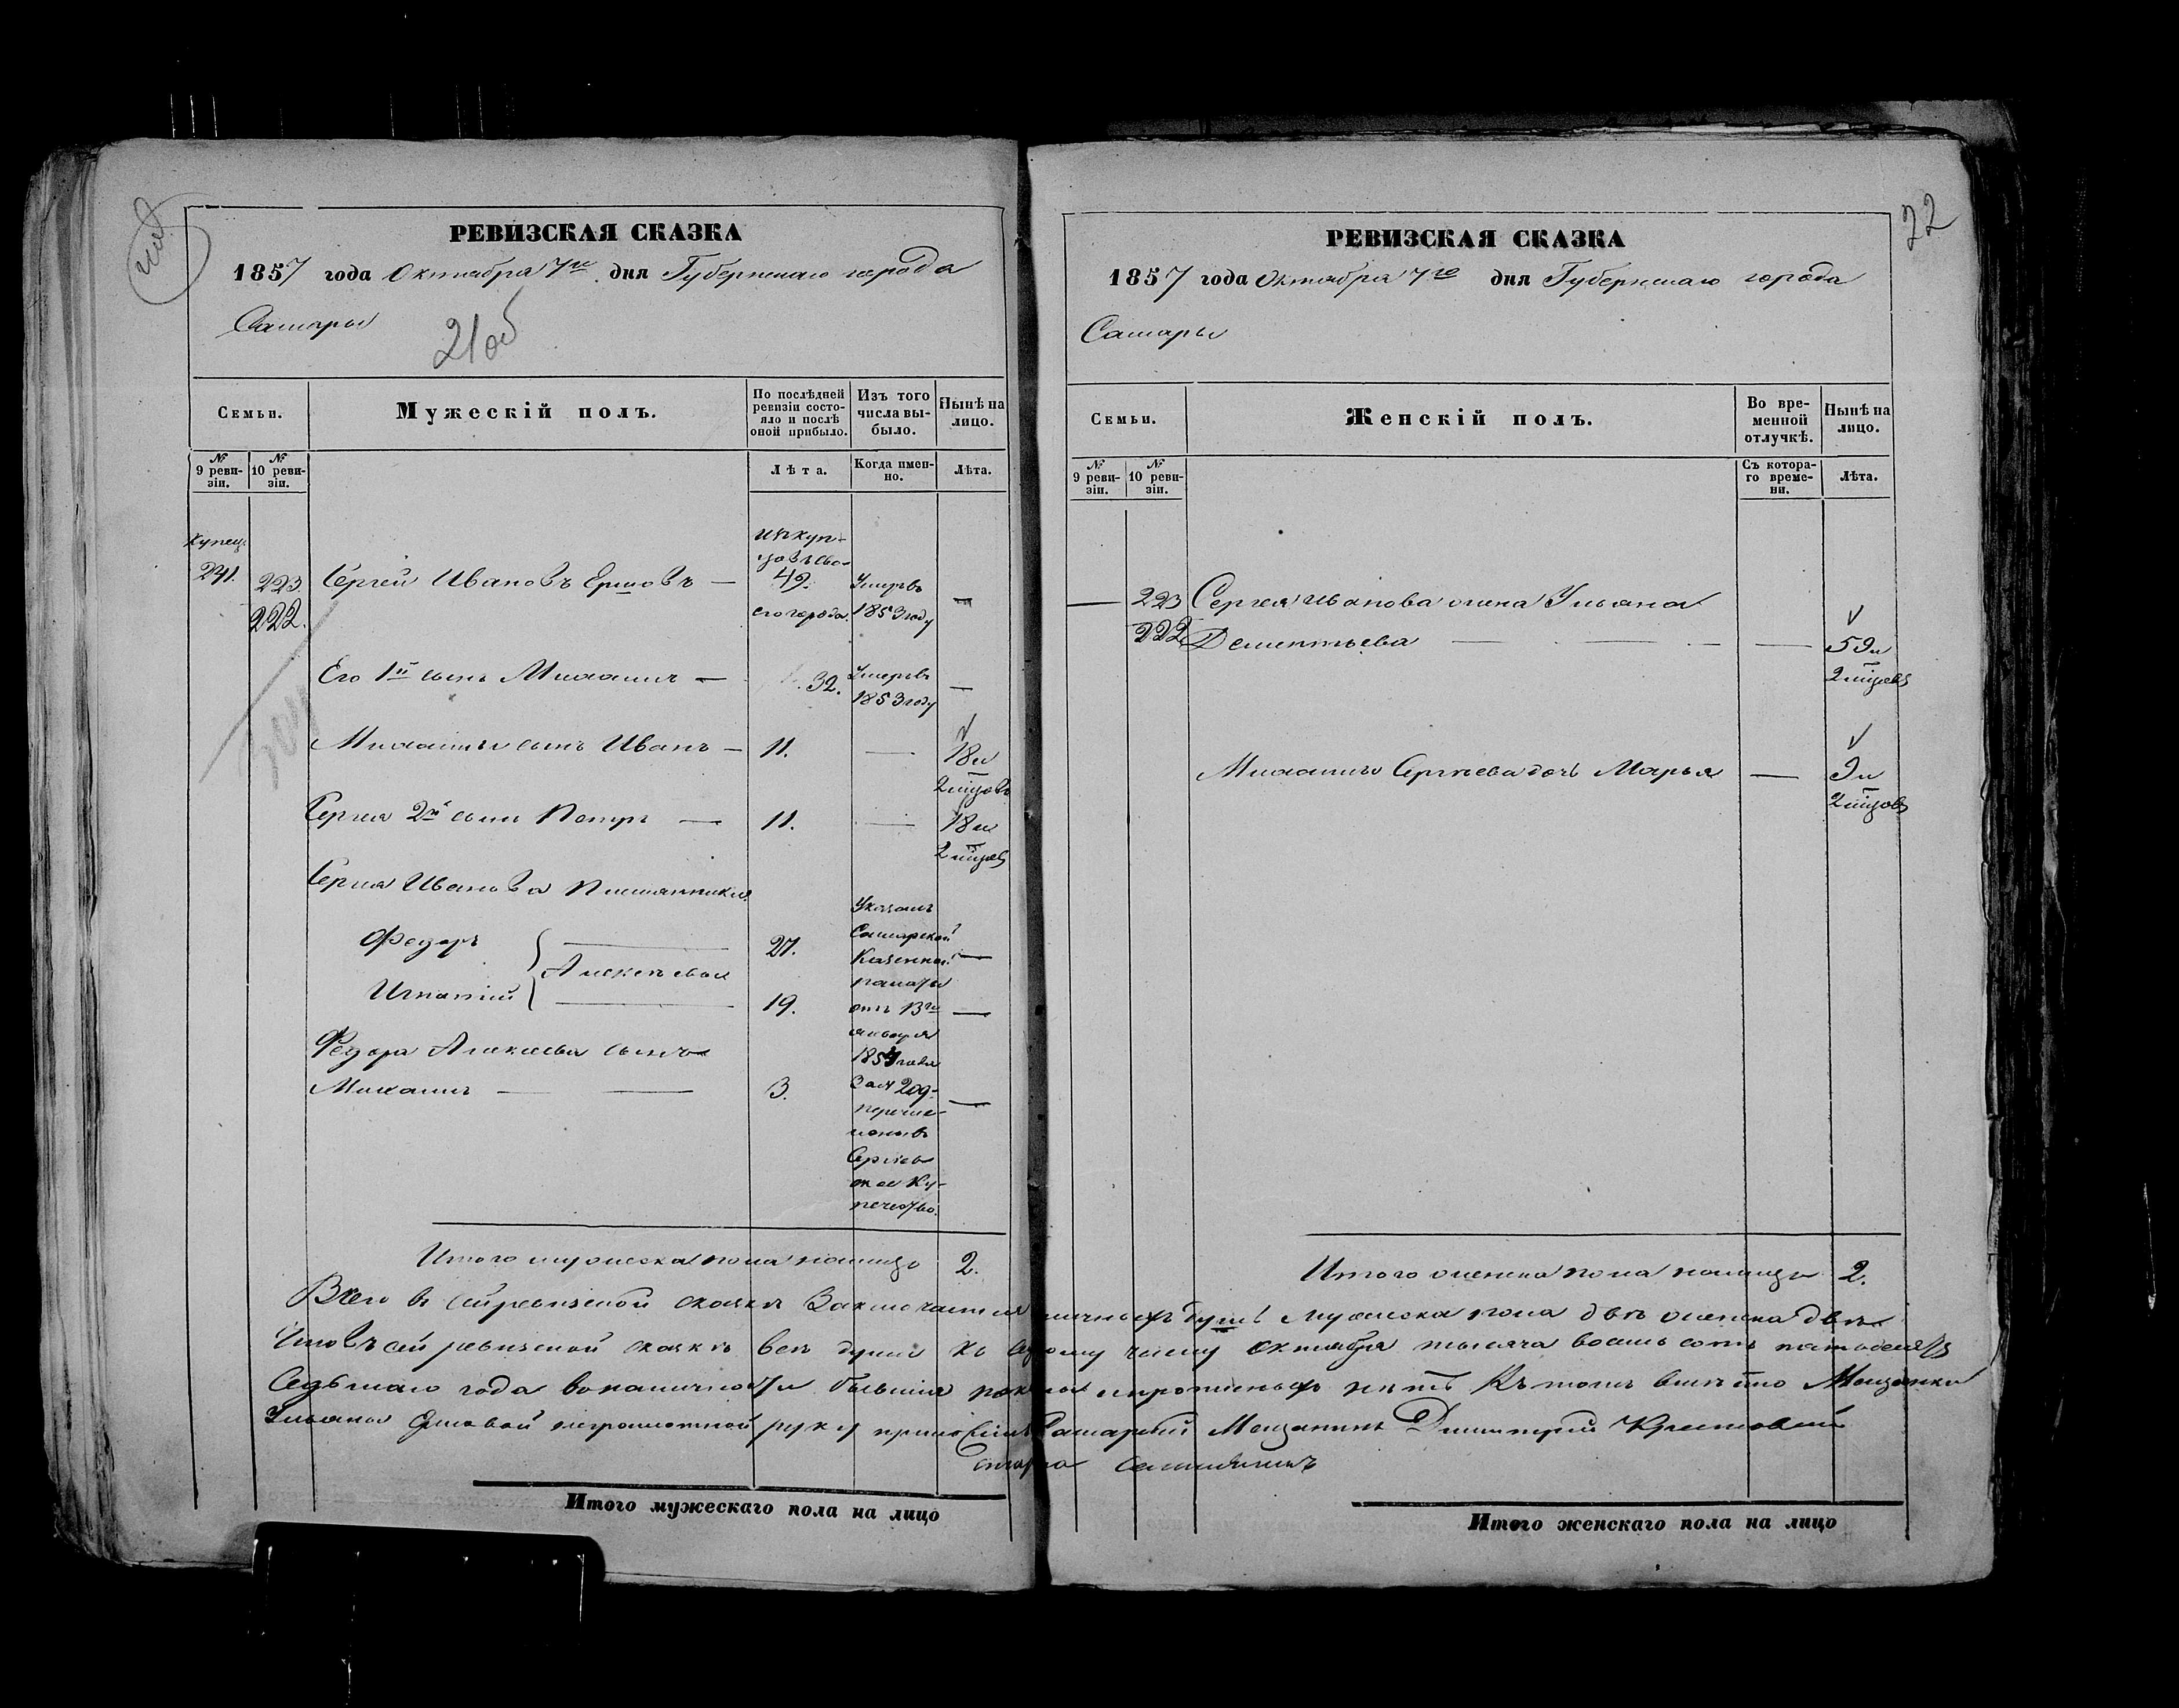 РЕВИЗСКАЯ СКАЗКА
1857 года Октября 7го дня Губернскаго города
Самары
21об
Семьи.
Мужескій полъ.
По послѣдней ревизіи состо-
яло и послѣ
оной прибыло.
Изъ того
числа вы-
было.
Нынѣ на
лицо.
№
9 реви-
зіи.
№
10 реви-
зіи.
Лѣта.
Когда имен-
но.
Лѣта.
купец.
241.
223.
222.
Сергей Ивановъ Ершовъ —
49.
его города.
Умеръ въ
1853 году
—
Его 1й сынъ Михаилъ —
32.
Умеръ въ
1853 году
—
Михаилы сынъ Иванъ —
11.
—
18 и
2 мѣсяцовъ
Сергея 2й сынъ Петръ —
11.
—
18 и
2 мѣсяцовъ
Сергея Иванова племянники
Федоръ
Игнатій
Алексѣевы
27.
19.
Федора Алексѣева сынъ
Михаилъ —
3.
Указомъ
Самарской
Казенной
палаты
отъ 13го
января
1854 года
За № 209
перечис-
лены въ
Сергіев-
ское Ку-
печество.
Итого мужеска пола налицо 2.
РЕВИЗСКАЯ СКАЗКА
22
1857 года Октября 7го дня Губернскаго города
Самары
Семьи.
Женскій полъ.
Во вре-
менной
отлучкѣ.
Нынѣ на
лицо.
№
9 реви-
зіи.
№
10 реви-
зіи.
Съ котора-
го време-
ни.
Лѣта.
— 223 Сергея Иванова жена Ульяна
222 Дементьева — — 59 и
2 мѣсяцовъ
Михаилы Сергѣева дочь Марья — 9 и
2 мѣсяцовъ
Итого женска пола налицо 2.
Всего въ сей ревизской сказкѣ Заключается наличныхъ душъ мужеска пола двѣ женска двѣ
Что въ сей ревизской сказкѣ всѣ души къ седьмому числу октября тысяча восемь сотъ пятьдесятъ
Седьмаго года въ наличности бывшія показаны и прописныхъ нѣтъ Къ томъ вмѣсто Мещанки
Ульяны Ершовой неграмотной руку приложилъ Самарскій Мещанинъ Димитрій
Итого мужескаго пола на лицо
Итого женскаго пола на лицо